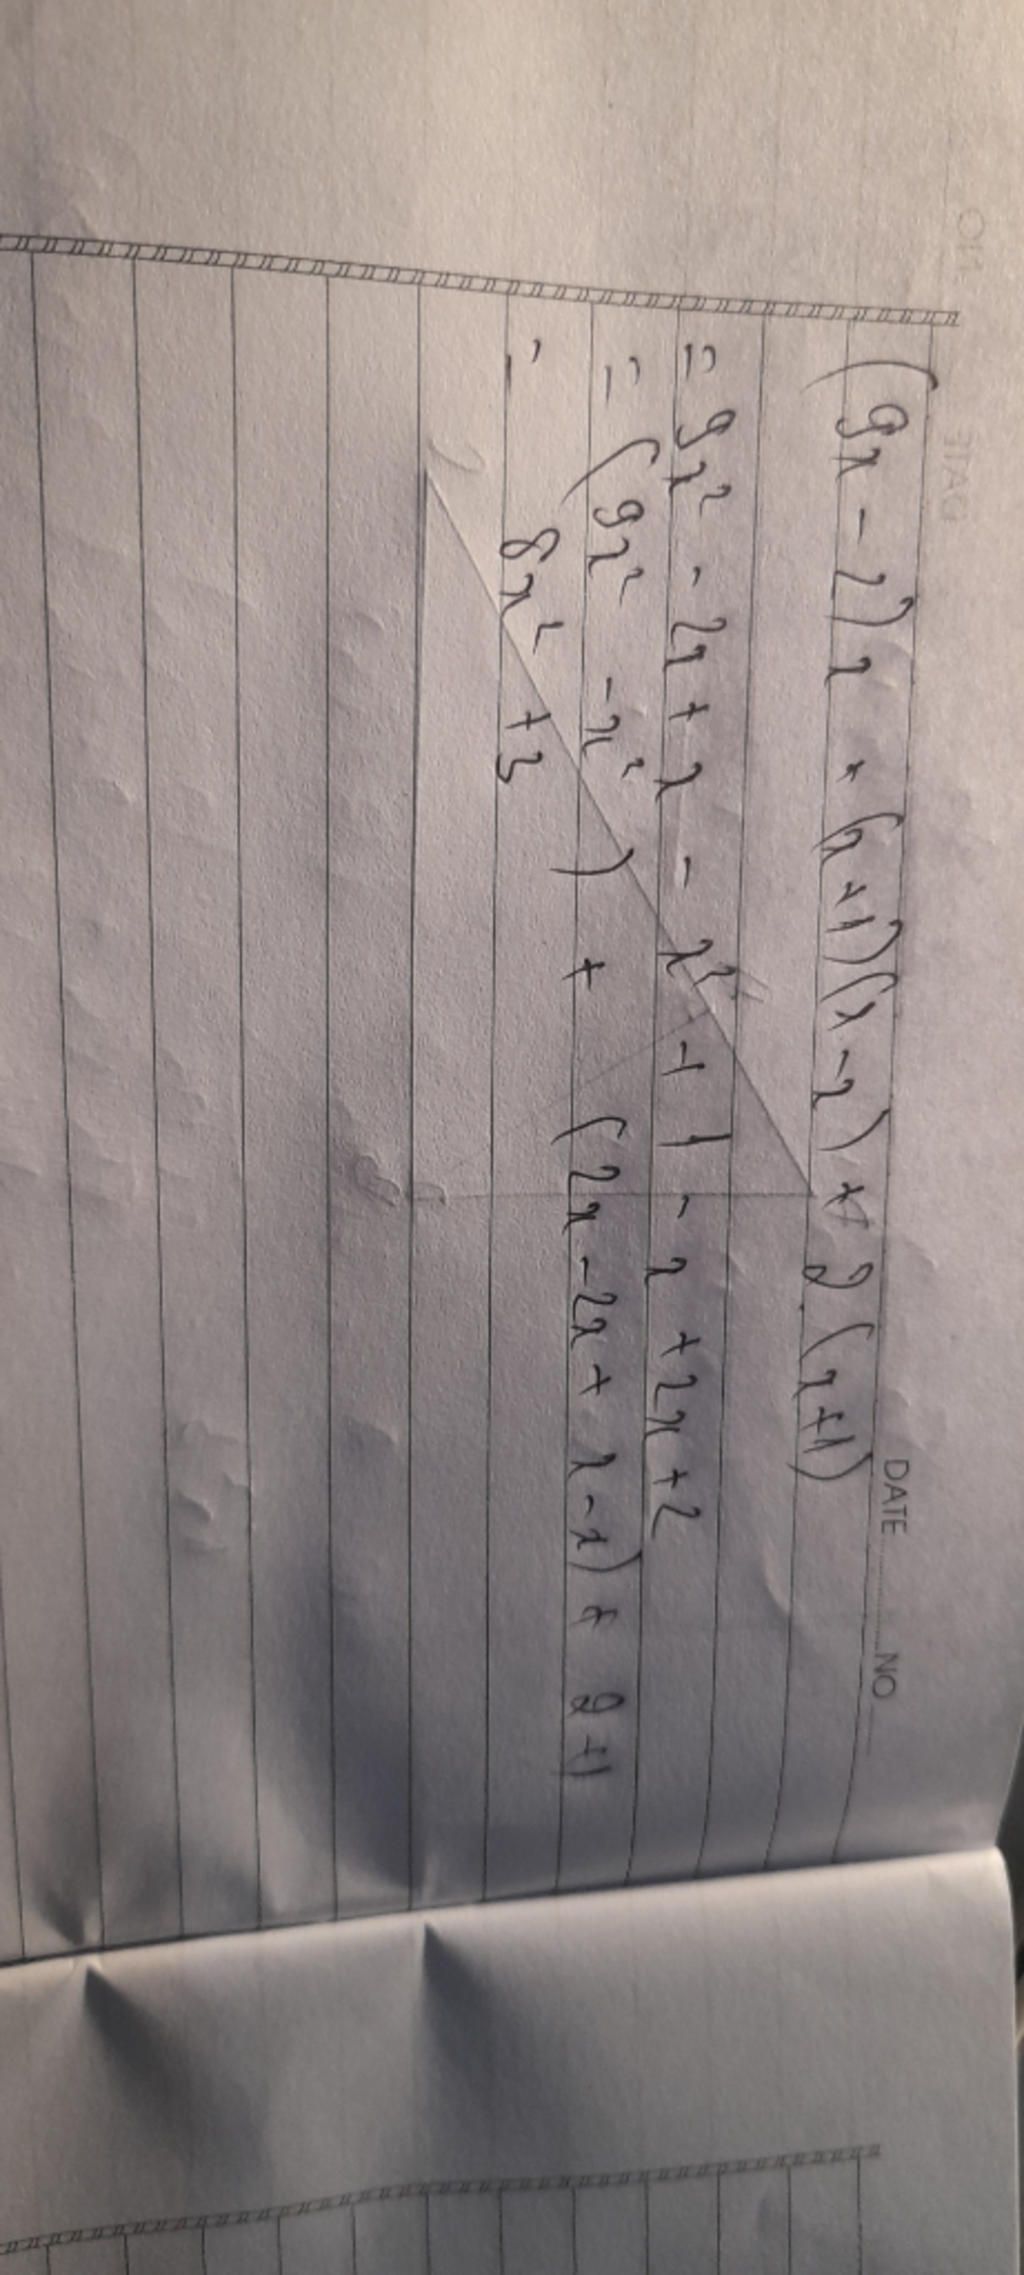 DATE NO
(9x - 2)x + (x+1)(x-2) + 2(x+1)
= 9x² - 2x + x - x² - 1 - x + 2x + 2
= (9x² - x²) + (2x - 2x + x - x) + 2+1
= 8x² + 3